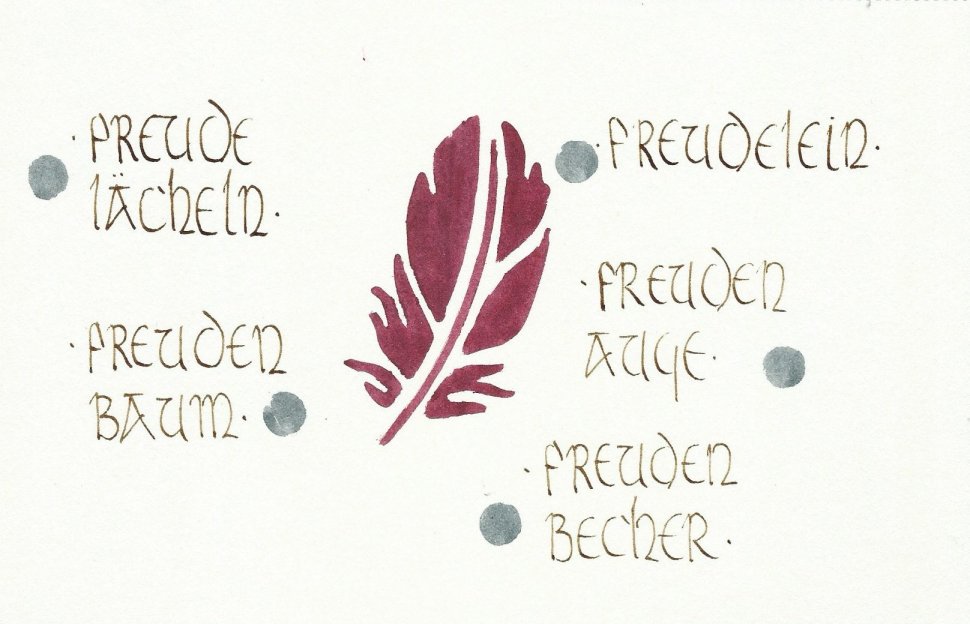 · FREUDE
LÄCHELN ·
· FREUDELEIN ·
· FREUDEN
AUGE ·
· FREUDEN
BAUM ·
· FREUDEN
BECHER ·